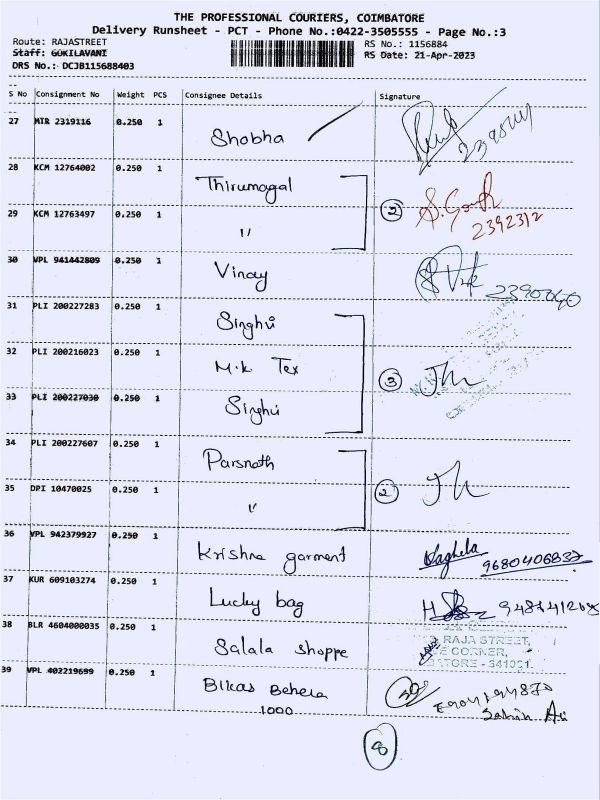 THE PROFESSIONAL COURIERS, COIMBATORE
Delivery Runsheet - PCT - Phone No.:0422-3505555 - Page No.:3
Route: RAJASTREET RS No.: 1156884
Staff: GOKILAVANI RS Date: 21-Apr-2023
DRS No.: DCJB115688403
S No Consignment No Weight PCS Consignee Details Signature
27 MTR 2319116 0.250 1 Shobha
28 KCM 12764002 0.250 1 Thirumagal
29 KCM 12763497 0.250 1 " 2 2392312
30 VPL 941442809 0.250 1 Vinay 2390040
31 PLI 200227283 0.250 1 Singhvi
32 PLI 200216023 0.250 1 M.k Tex 3
33 PLI 200227030 0.250 1 Singhvi
34 PLI 200227607 0.250 1 Parsnath
35 DPI 10470025 0.250 1 " 2
36 VPL 942379927 0.250 1 Krishna garment Vaghela 9680406837
37 KUR 609103274 0.250 1 Lucky bag
38 BLR 4604000035 0.250 1 Salala Shoppe RAJA STREET,
CORNER,
39 VPL 402219699 0.250 1 Bikas Behera
1000
8